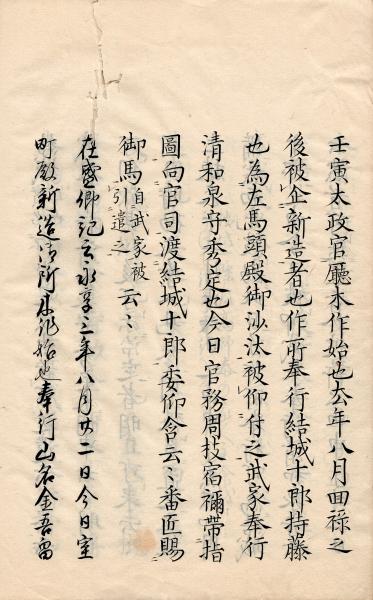 壬寅太政官廳木作始也去年八月回禄之
後被企新造者也作所奉行結城十郎持藤
也為左馬頭殿御沙汰被仰付之武家奉行
清和泉守秀定也今日官務周枝宿禰帯指
圖向官司渡結城十郎委仰含云〻番匠賜
御馬自武家被引遣之云〻
在盛卿記云永享三年八月廿二日今日室
町殿新造御所木作始也奉行山名金吾畠